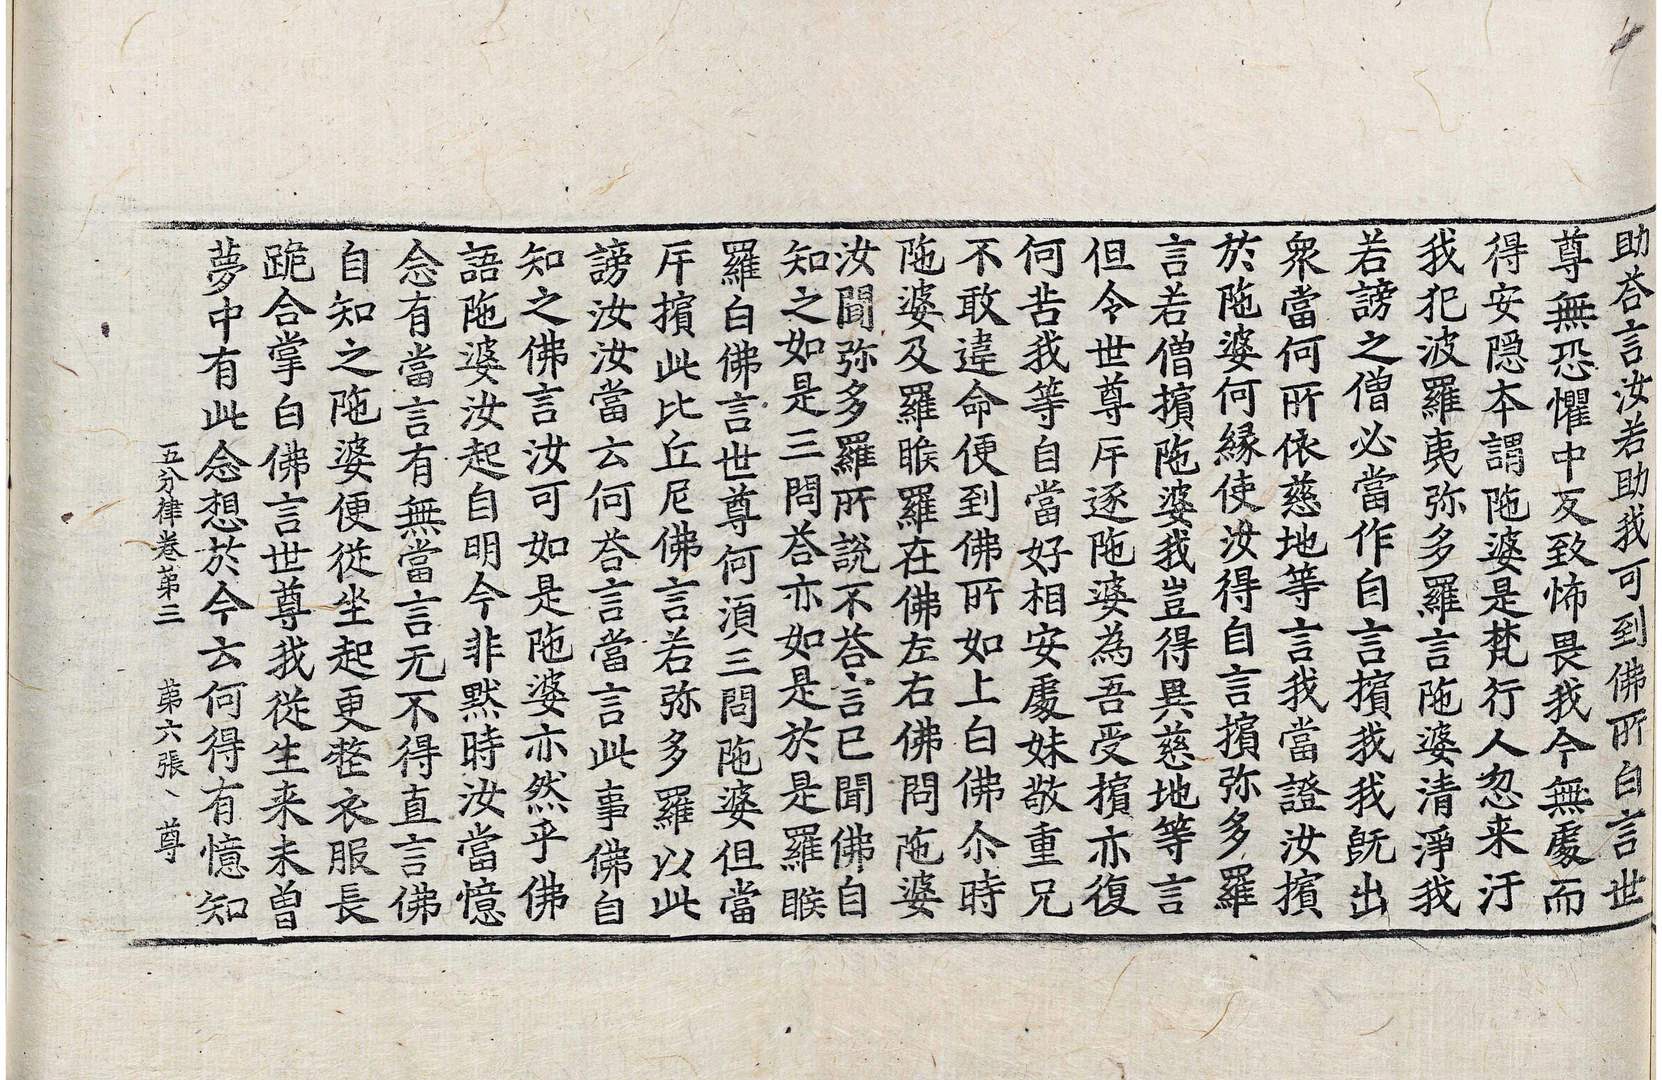 助荅言汝若助我可到佛所白言世
尊無恐懼中反致怖畏我今無處而
得安隱本謂陁婆是梵行人忽来汙
我犯波羅夷弥多羅言陁婆清淨我
若謗之僧必當作自言擯我我旣出
衆當何所依慈地等言我當證汝擯
於陁婆何緣使汝得自言擯弥多羅
言若僧擯陁婆我豈得異慈地等言
但令世尊斥逐陁婆為吾受擯亦復
何苦我等自當好相安處妹敬重兄
不敢違命便到佛所如上白佛尒時
陁婆及羅睺羅在佛左右佛問陁婆
汝聞弥多羅所說不荅言已聞佛自
知之如是三問荅亦如是於是羅睺
羅白佛言世尊何湏三問陁婆但當
斥擯此比丘尼佛言若弥多羅以此
謗汝汝當云何荅言當言此事佛自
知之佛言汝可如是陁婆亦然乎佛
語陁婆汝起自明今非默時汝當憶
念有當言有無當言无不得直言佛
自知之陁婆便從坐起更整衣服長
跪合掌白佛言世尊我從生来未曽
夢中有此念想於今云何得有憶知
五分律卷第三　第六張、尊